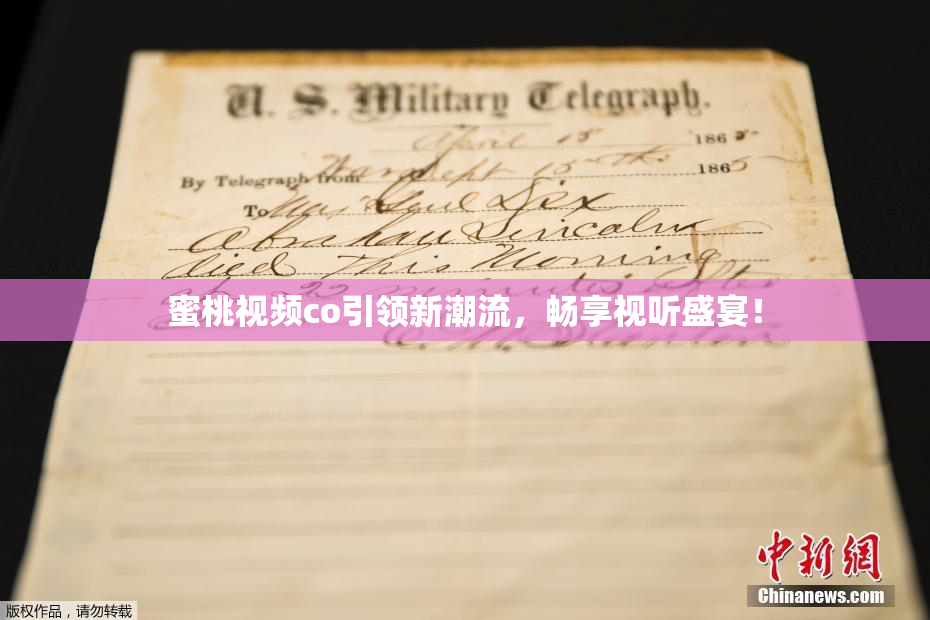 U. S. Military Telegraph.
April 15 1865
By Telegraph from War Dept 15th 1865
To Maj Genl Dix
Abraham Lincoln
died This Morning
22 minutes after
蜜桃视频co引领新潮流，畅享视听盛宴！
E. M. Stanton
中新网
Chinanews.com
版权作品，请勿转载